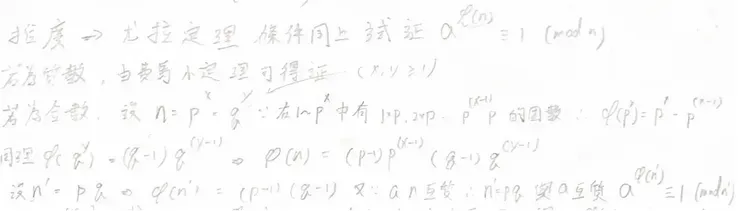 推廣 → 尤拉定理 條件同上 試証 a^φ(n) ≡ 1 (mod n)
若為質數,由費馬小定理可得証 (x,y ≥ 1)
若為合數,設 n = p^x · q^y ∵ 在1~p^x 中有 1×p, 2×p … p^(x-1) p 的因數 ∴ φ(p^x) = p^x - p^(x-1)
同理 φ(q^y) = (q-1) q^(y-1) ⇒ φ(n) = (p-1) p^(x-1) (q-1) q^(y-1)
設 n' = p q ⇒ φ(n') = (p-1)(q-1) 又∵ a n 互質 ∴ n' = pq 與 a 互質 a^φ(n') ≡ 1 (mod n')